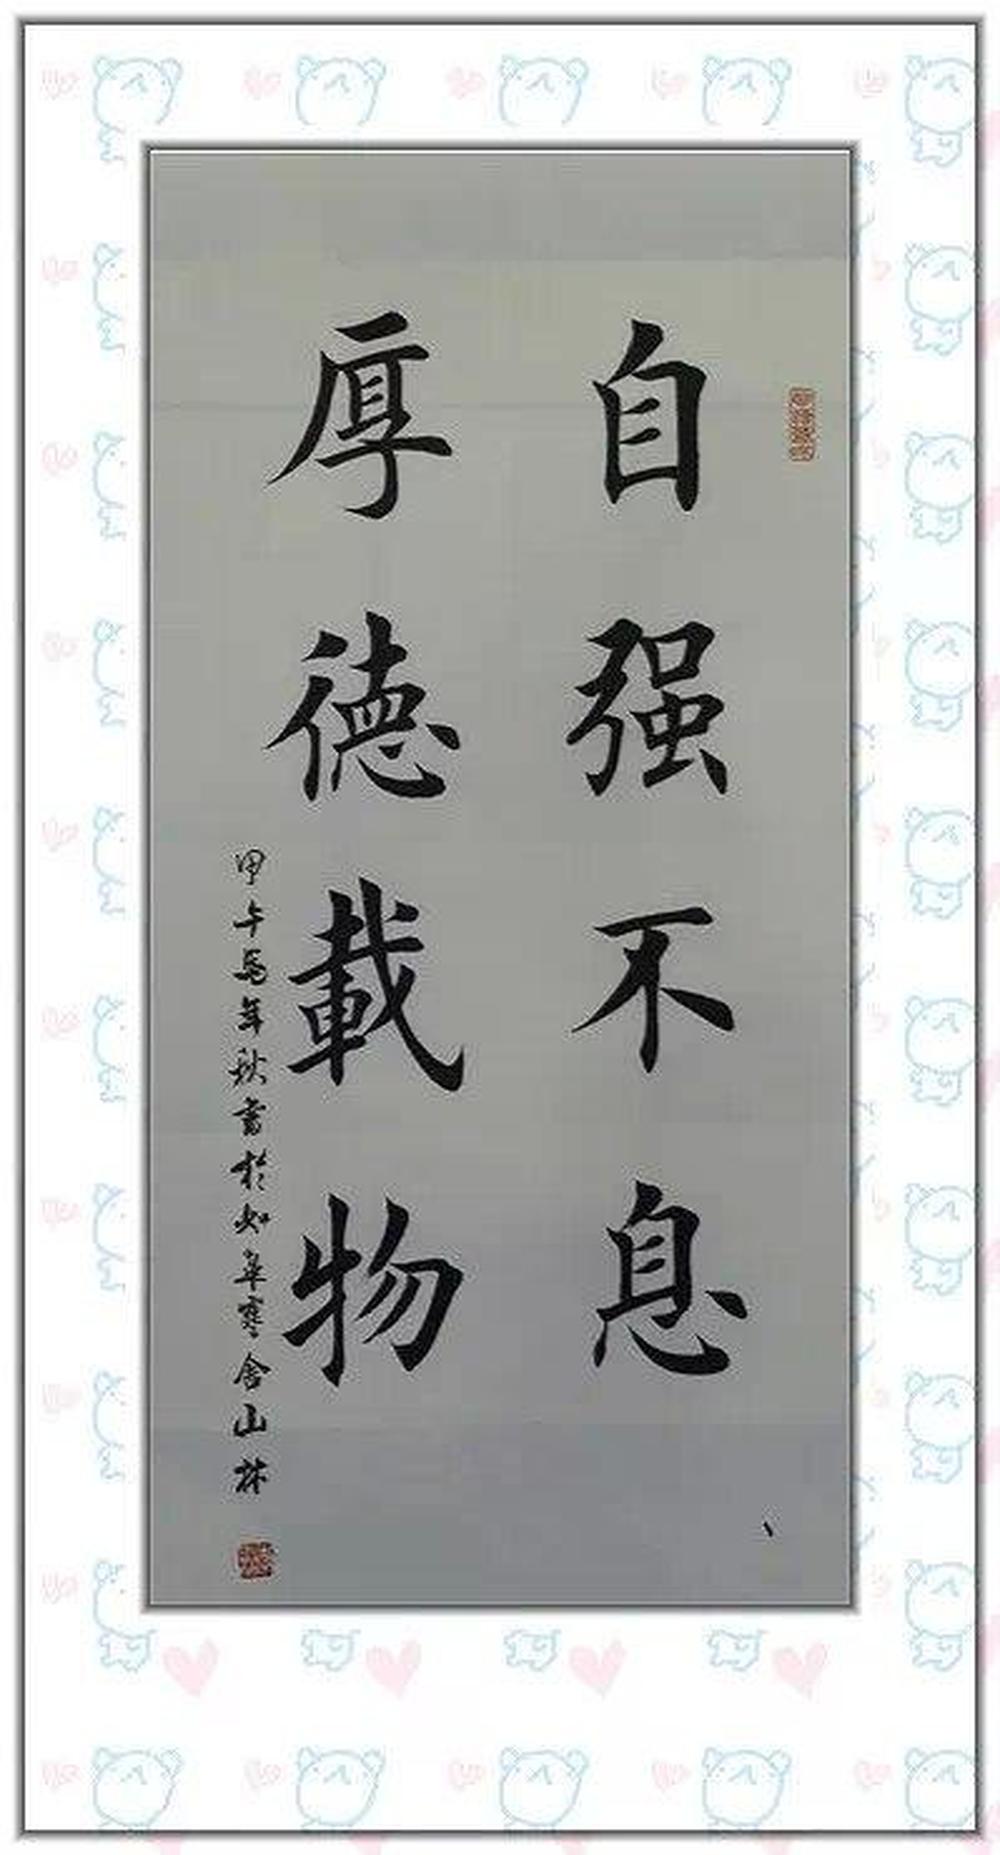 自强不息
厚德載物
甲午馬年秋書於如皋寒舍山林